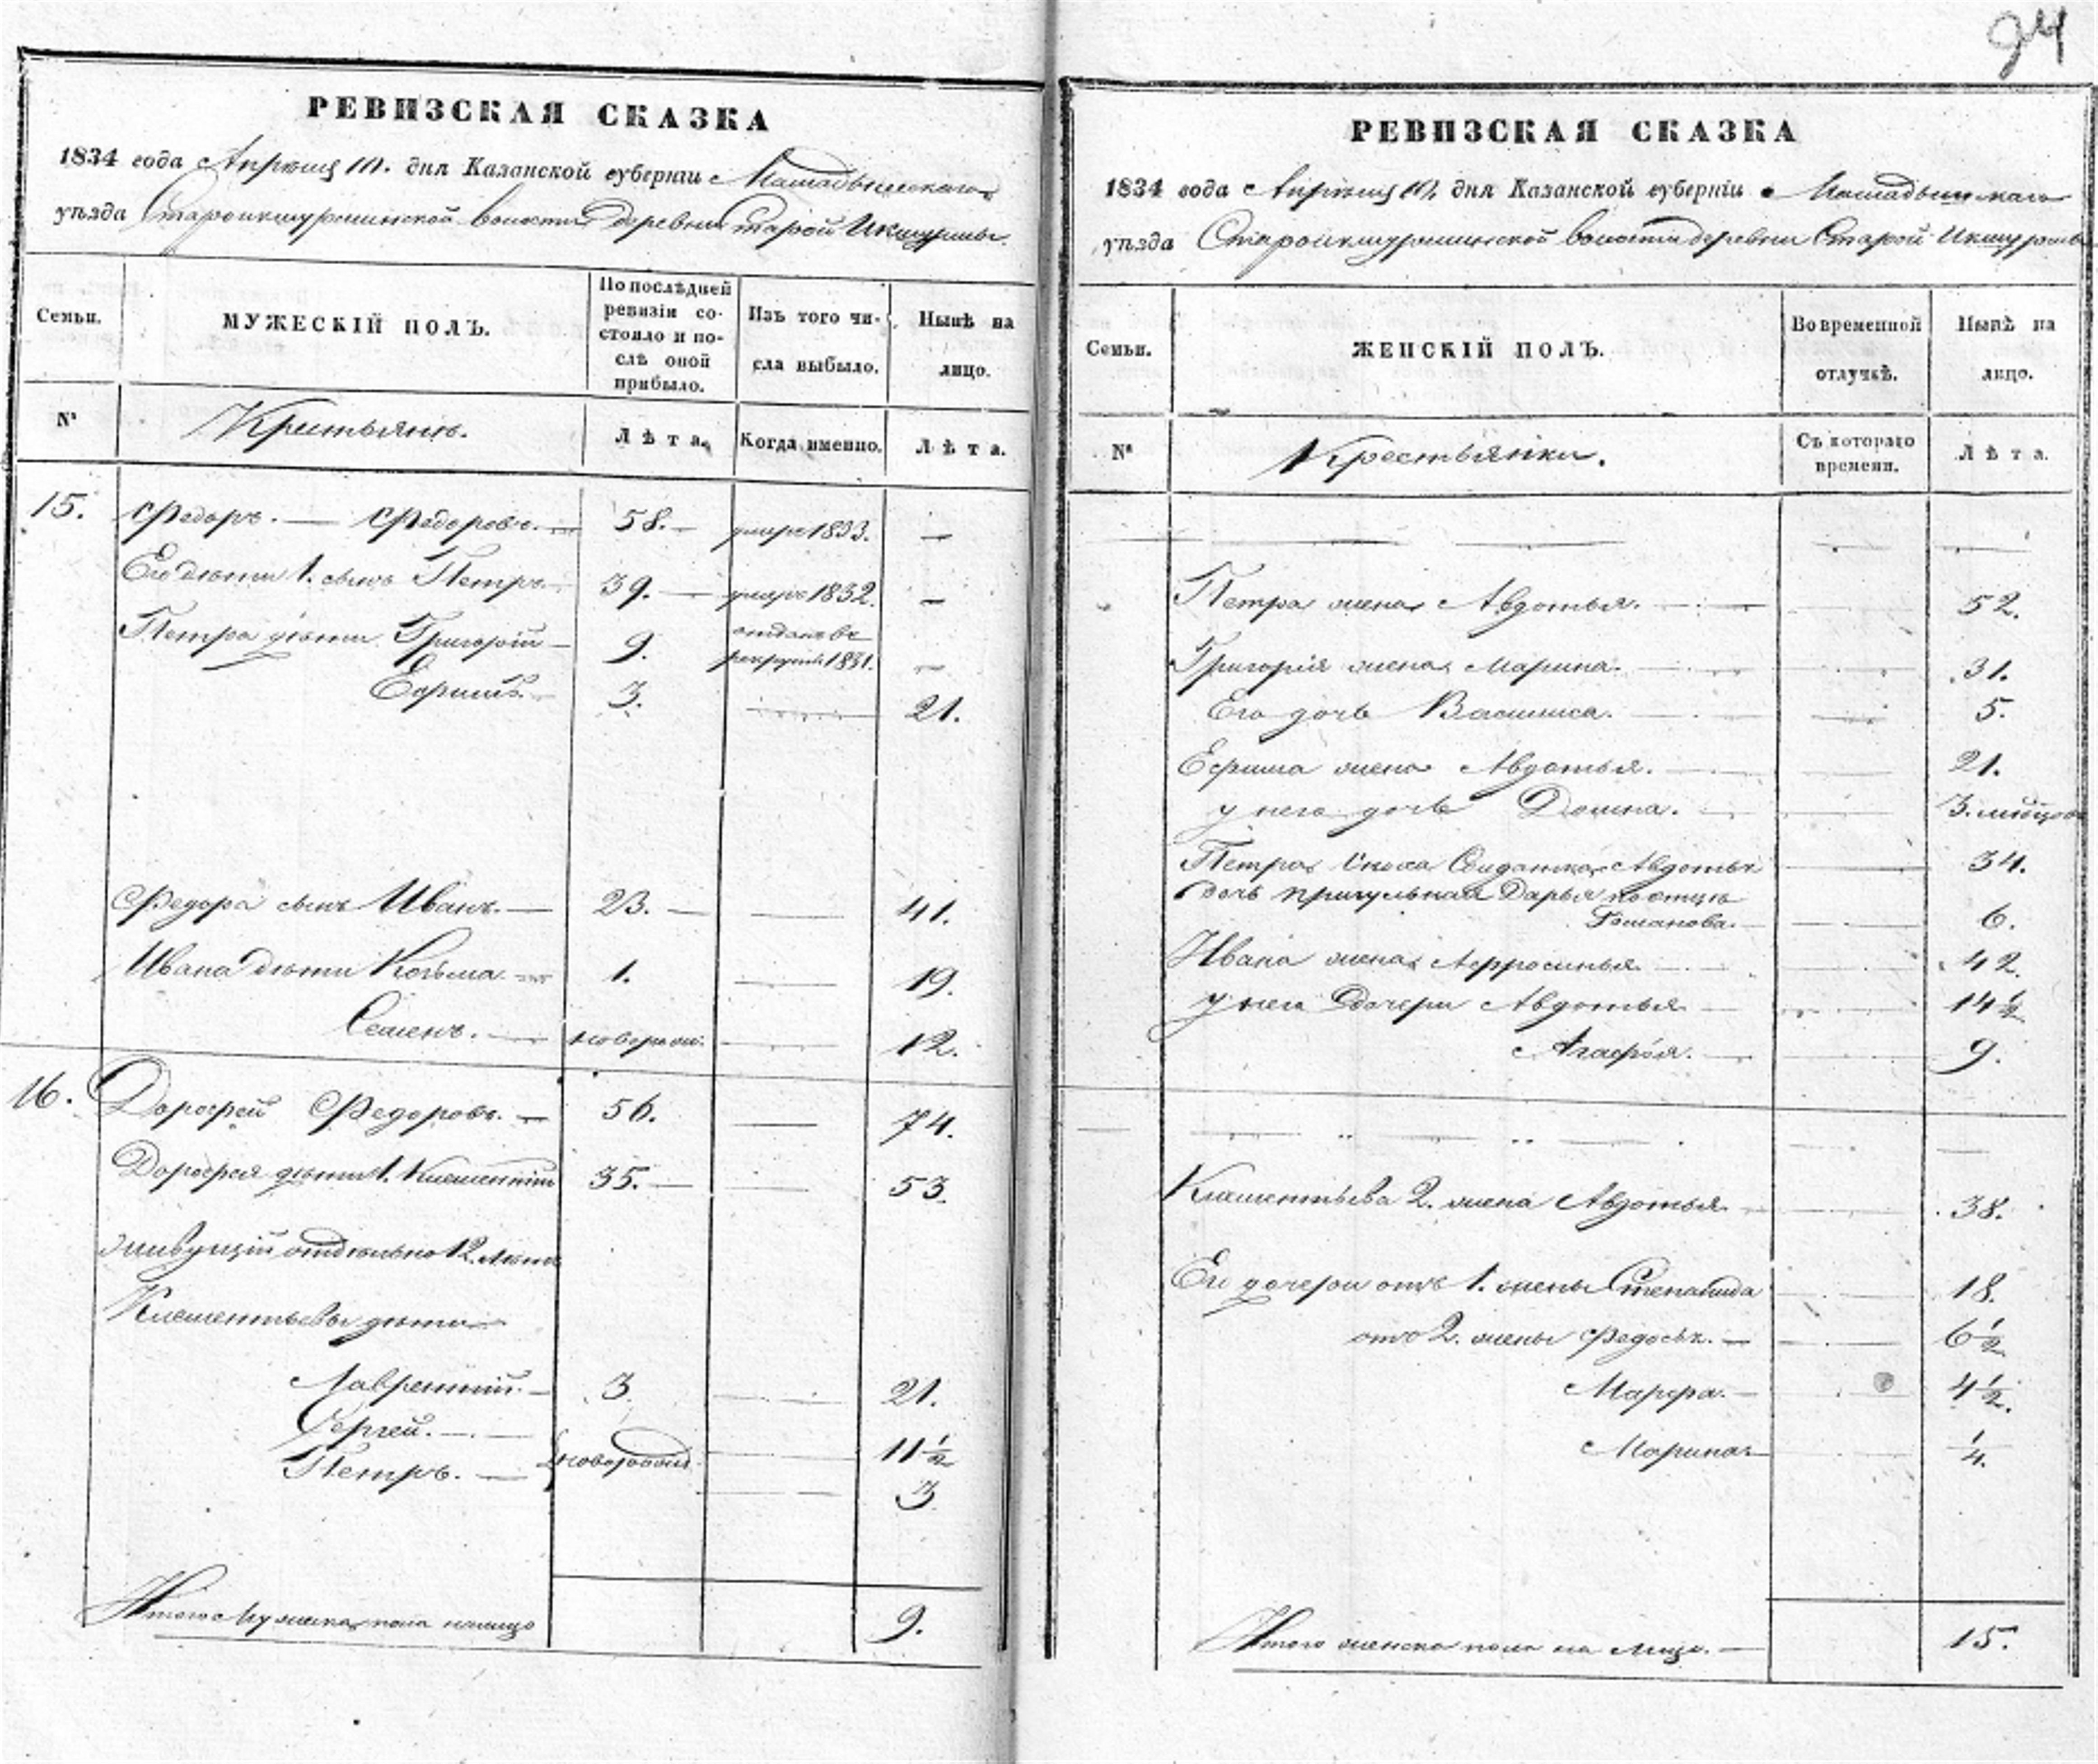 94
РЕВИЗСКАЯ СКАЗКА
1834 года Апреля 10. дня Казанской губернiи Мамадышскаго
уѣзда Староикшурминской волости деревни Старой Икшурмы.
Семьи.
МУЖЕСКIЙ ПОЛЪ.
По послѣдней ревизiи со-
стояло и по-
слѣ оной
прибыло.
Изъ того чи-
сла выбыло.
Нынѣ на
лицо.
№
Крестьянъ.
Лѣта.
Когда именно.
Лѣта.
15. Федоръ. — Федоровъ. 58. умре 1833. —
Его дѣти 1. сынъ Петръ 39. умре 1832. —
Петра дѣти Григорiй 9. отданъ въ рекруты 1831. —
Ефимъ 3. 21.
Федора сынъ Иванъ. 23. 41.
Ивана дѣти Козьма. 1. 19.
Семенъ. новорож. 12.
16. Дорофей Федоровъ. 56. 74.
Дорофея дѣти 1. Клементiй 35. 53.
живущiй отдѣльно 12. лѣтъ
Клементьевы дѣти
Лаврентiй. 3. 21.
Сергей. 11 1/2
Петръ. новорожд. 3
Итого Мужеска пола налицо 9.
РЕВИЗСКАЯ СКАЗКА
1834 года Апреля 10. дня Казанской губернiи Мамадышскаго
уѣзда Староикшурминской волости деревни Старой Икшурмы
Семьи.
ЖЕНСКIЙ ПОЛЪ.
Во временной
отлучкѣ.
Нынѣ на
лицо.
№
Крестьянки.
Съ котораго
времени.
Лѣта.
Петра жена Авдотья. 52.
Григорiя жена Марина. 31.
Его дочь Василиса. 5.
Ефима жена Авдотья. 21.
у него дочь Домна. 3. месяцов
Петра сноха Солдатка Авдотья 34.
дочь пригульная Дарья по отцѣ
Романова. 6.
Ивана жена Афросинья 42.
у него дочери Авдотья 14 1/2
Агафья. 9.
Клементьева 2. жена Авдотья 38.
Его дочери отъ 1. жены Степанида 18.
отъ 2. жены Федосья. 6 1/2
Марфа. 4 1/2.
Марина 1/4.
Итого женска пола на лицо. 15.